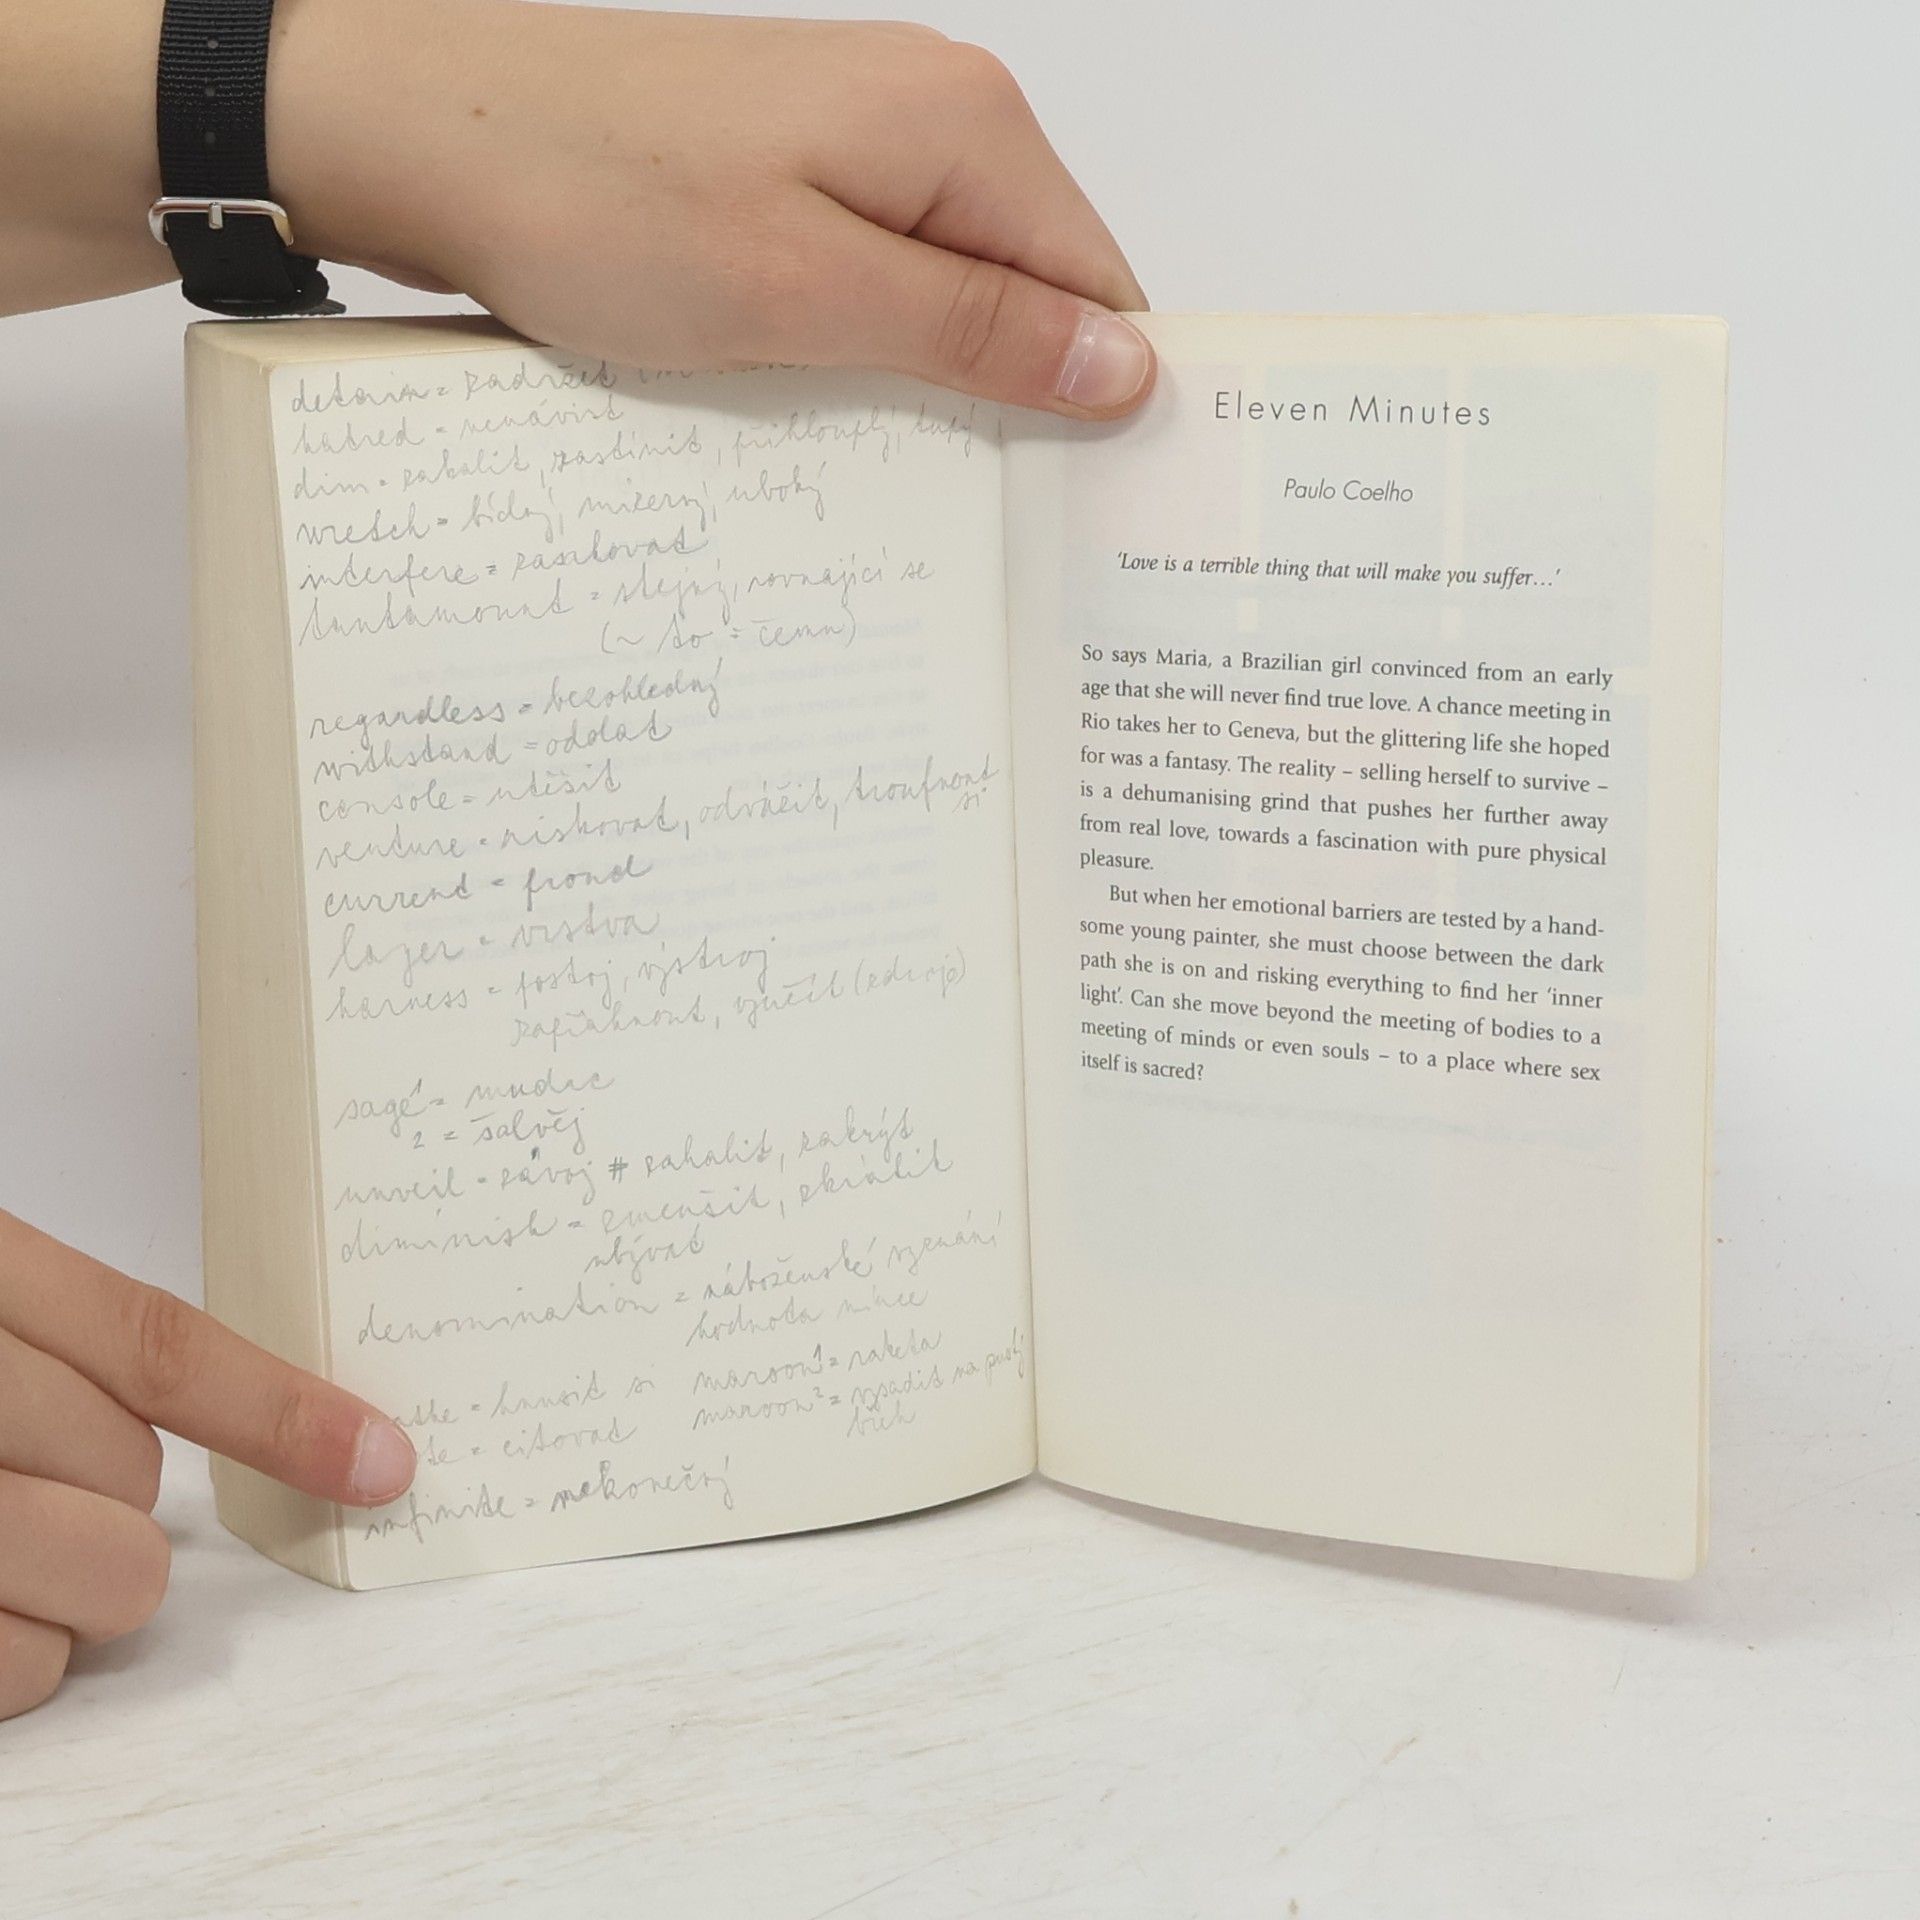 detain = zadržet
hatred = nenávist
dim = zahalit, zastínit, přihlouplý, tupý
wretch = bídný, mizerný, ubohý
interfere = zasahovat
tantamount = stejný, rovnající se
(~ to = čemu)
regardless = bezohledný
withstand = odolat
console = utěšit
venture = riskovat, odvážit, troufnout
si
current = proud
layer = vrstva
harness = postoj, výstroj
zapřáhnout, využít (zdroje)
sage¹ = mudrc
2 = šalvěj
unveil = závoj # zahalit, zakrýt
diminish = zmenšit, zkrátit
ubývat
denomination = náboženské vyznání
hodnota mince
= hnusit si maroon¹ = raketa
= citovat maroon² = vysadit na pustý
břeh
infinite = nekonečný
Eleven Minutes
Paulo Coelho
‘Love is a terrible thing that will make you suffer…’
So says Maria, a Brazilian girl convinced from an early
age that she will never find true love. A chance meeting in
Rio takes her to Geneva, but the glittering life she hoped
for was a fantasy. The reality – selling herself to survive –
is a dehumanising grind that pushes her further away
from real love, towards a fascination with pure physical
pleasure.
But when her emotional barriers are tested by a hand-
some young painter, she must choose between the dark
path she is on and risking everything to find her ‘inner
light’. Can she move beyond the meeting of bodies to a
meeting of minds or even souls – to a place where sex
itself is sacred?